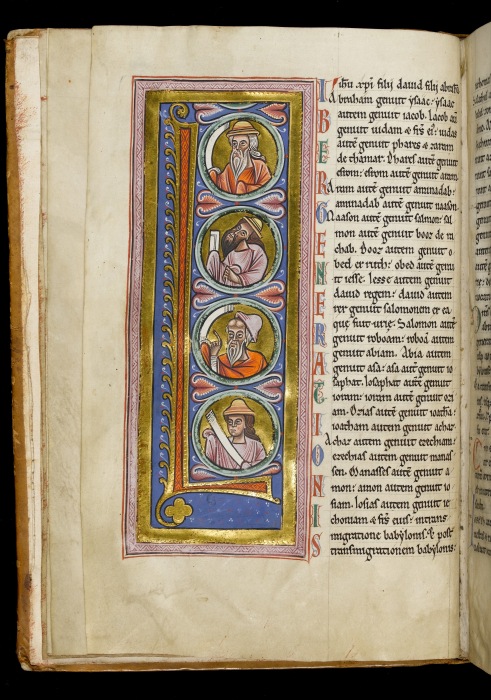 L
IBER GENERATIONIS
ihu xpi filij dauid filij abrahā
Abraham genuit ysaac: ysaac
autem genuit iacob. Iacob autē
genuit iudam & frs ei: iudas
autē genuit phares & zaram
de thamar. Phares autē genuit
esrom: esrom autē genuit aram
Aram autē genuit aminadab:
aminadab autē genuit naason.
Naason autē genuit salmon: sal
mon autē genuit booz de ra
chab. Booz autem genuit o
bed ex ruth: obed autē genu
it iesse. Iesse autem genuit
dauid regem: dauid autem
rex genuit salomonem ex ea
que fuit urię. Salomon autē
genuit roboam: roboā autem
genuit abiam. Abia autem
genuit asa: asa autē genuit io
saphat. Iosaphat autē genuit
ioram: ioram autē genuit ozi
am. Ozias autē genuit ioathā:
ioatham autem genuit achaz
Achaz autem genuit ezechiam:
ezechias autem genuit manas
sen. Manasses autē genuit a
mon: amon autem genuit io
siam. Iosias autem genuit ie
choniam & frs eius: in trans
migratione babylonis. & post
transmigrationem babylonis: